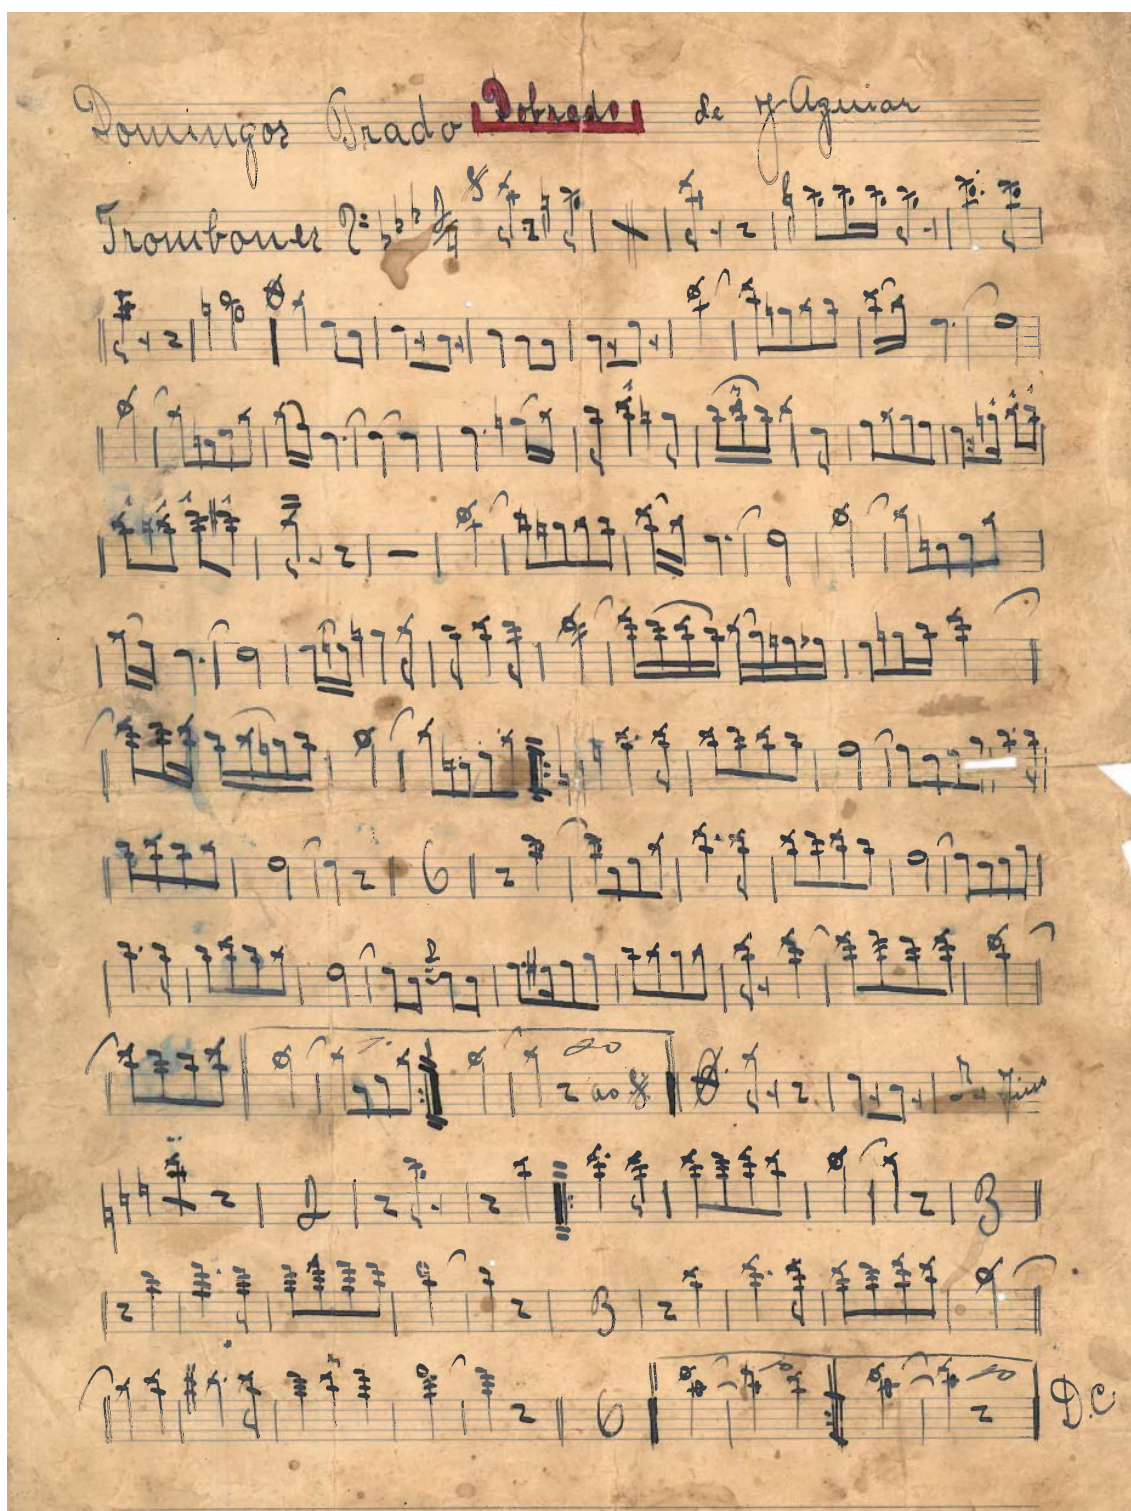 Domingos Prado Dobrado de J Aguiar
Trombones
6
ao
Fim
2
3
3
6
D.C